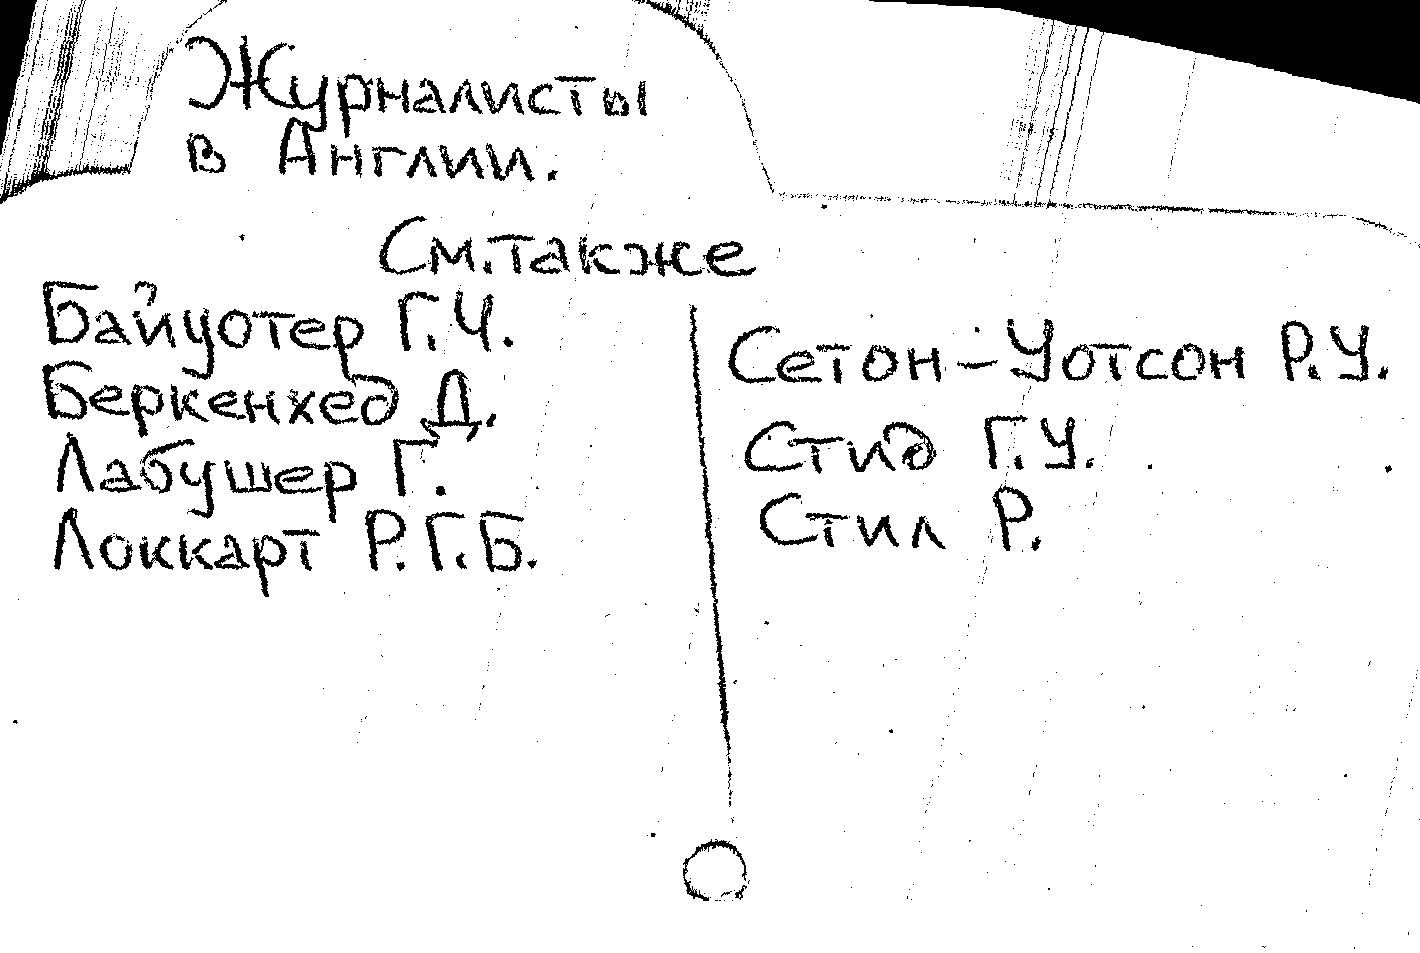 Журналисты
в Англии.
См. также
Байуотер Г.Ч.
Беркенхед Д.
Лабушер Г.
Локкарт Р.Г.Б.
Сетон-Уотсон Р.У.
Стид Г.У.
Стил Р.